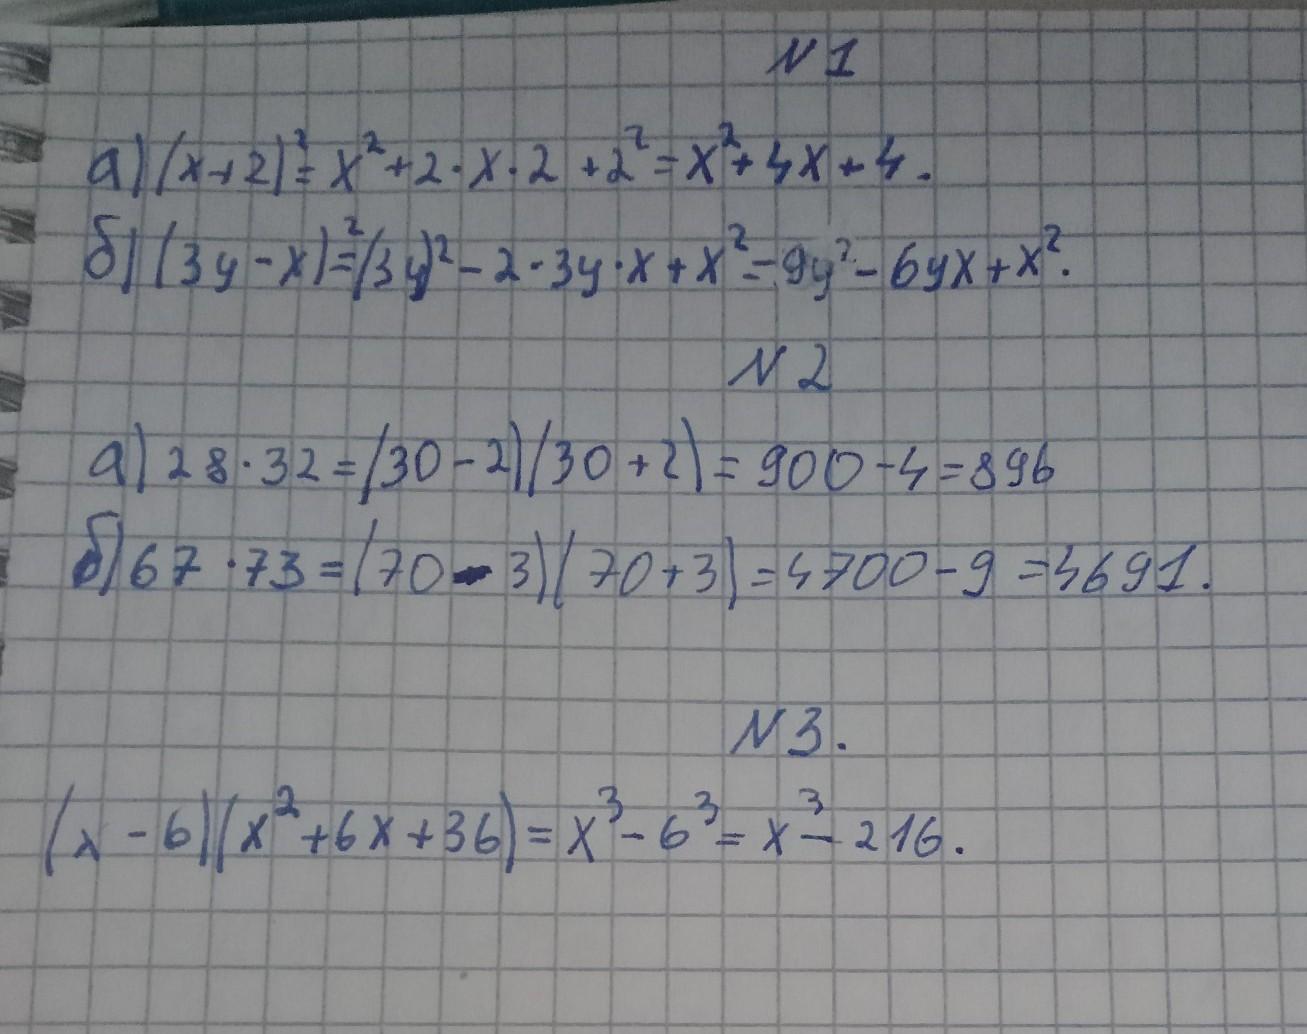 N1
а) (x+2)²=x²+2·x·2+2²=x²+4x+4.
б) (3y-x)²=(3y)²-2·3y·x+x²=9y²-6yx+x².
N2
а) 28·32=(30-2)(30+2)=900-4=896
б) 67·73=(70-3)(70+3)=4700-9=4691.
N3.
(x-6)(x²+6x+36)=x³-6³=x³-216.